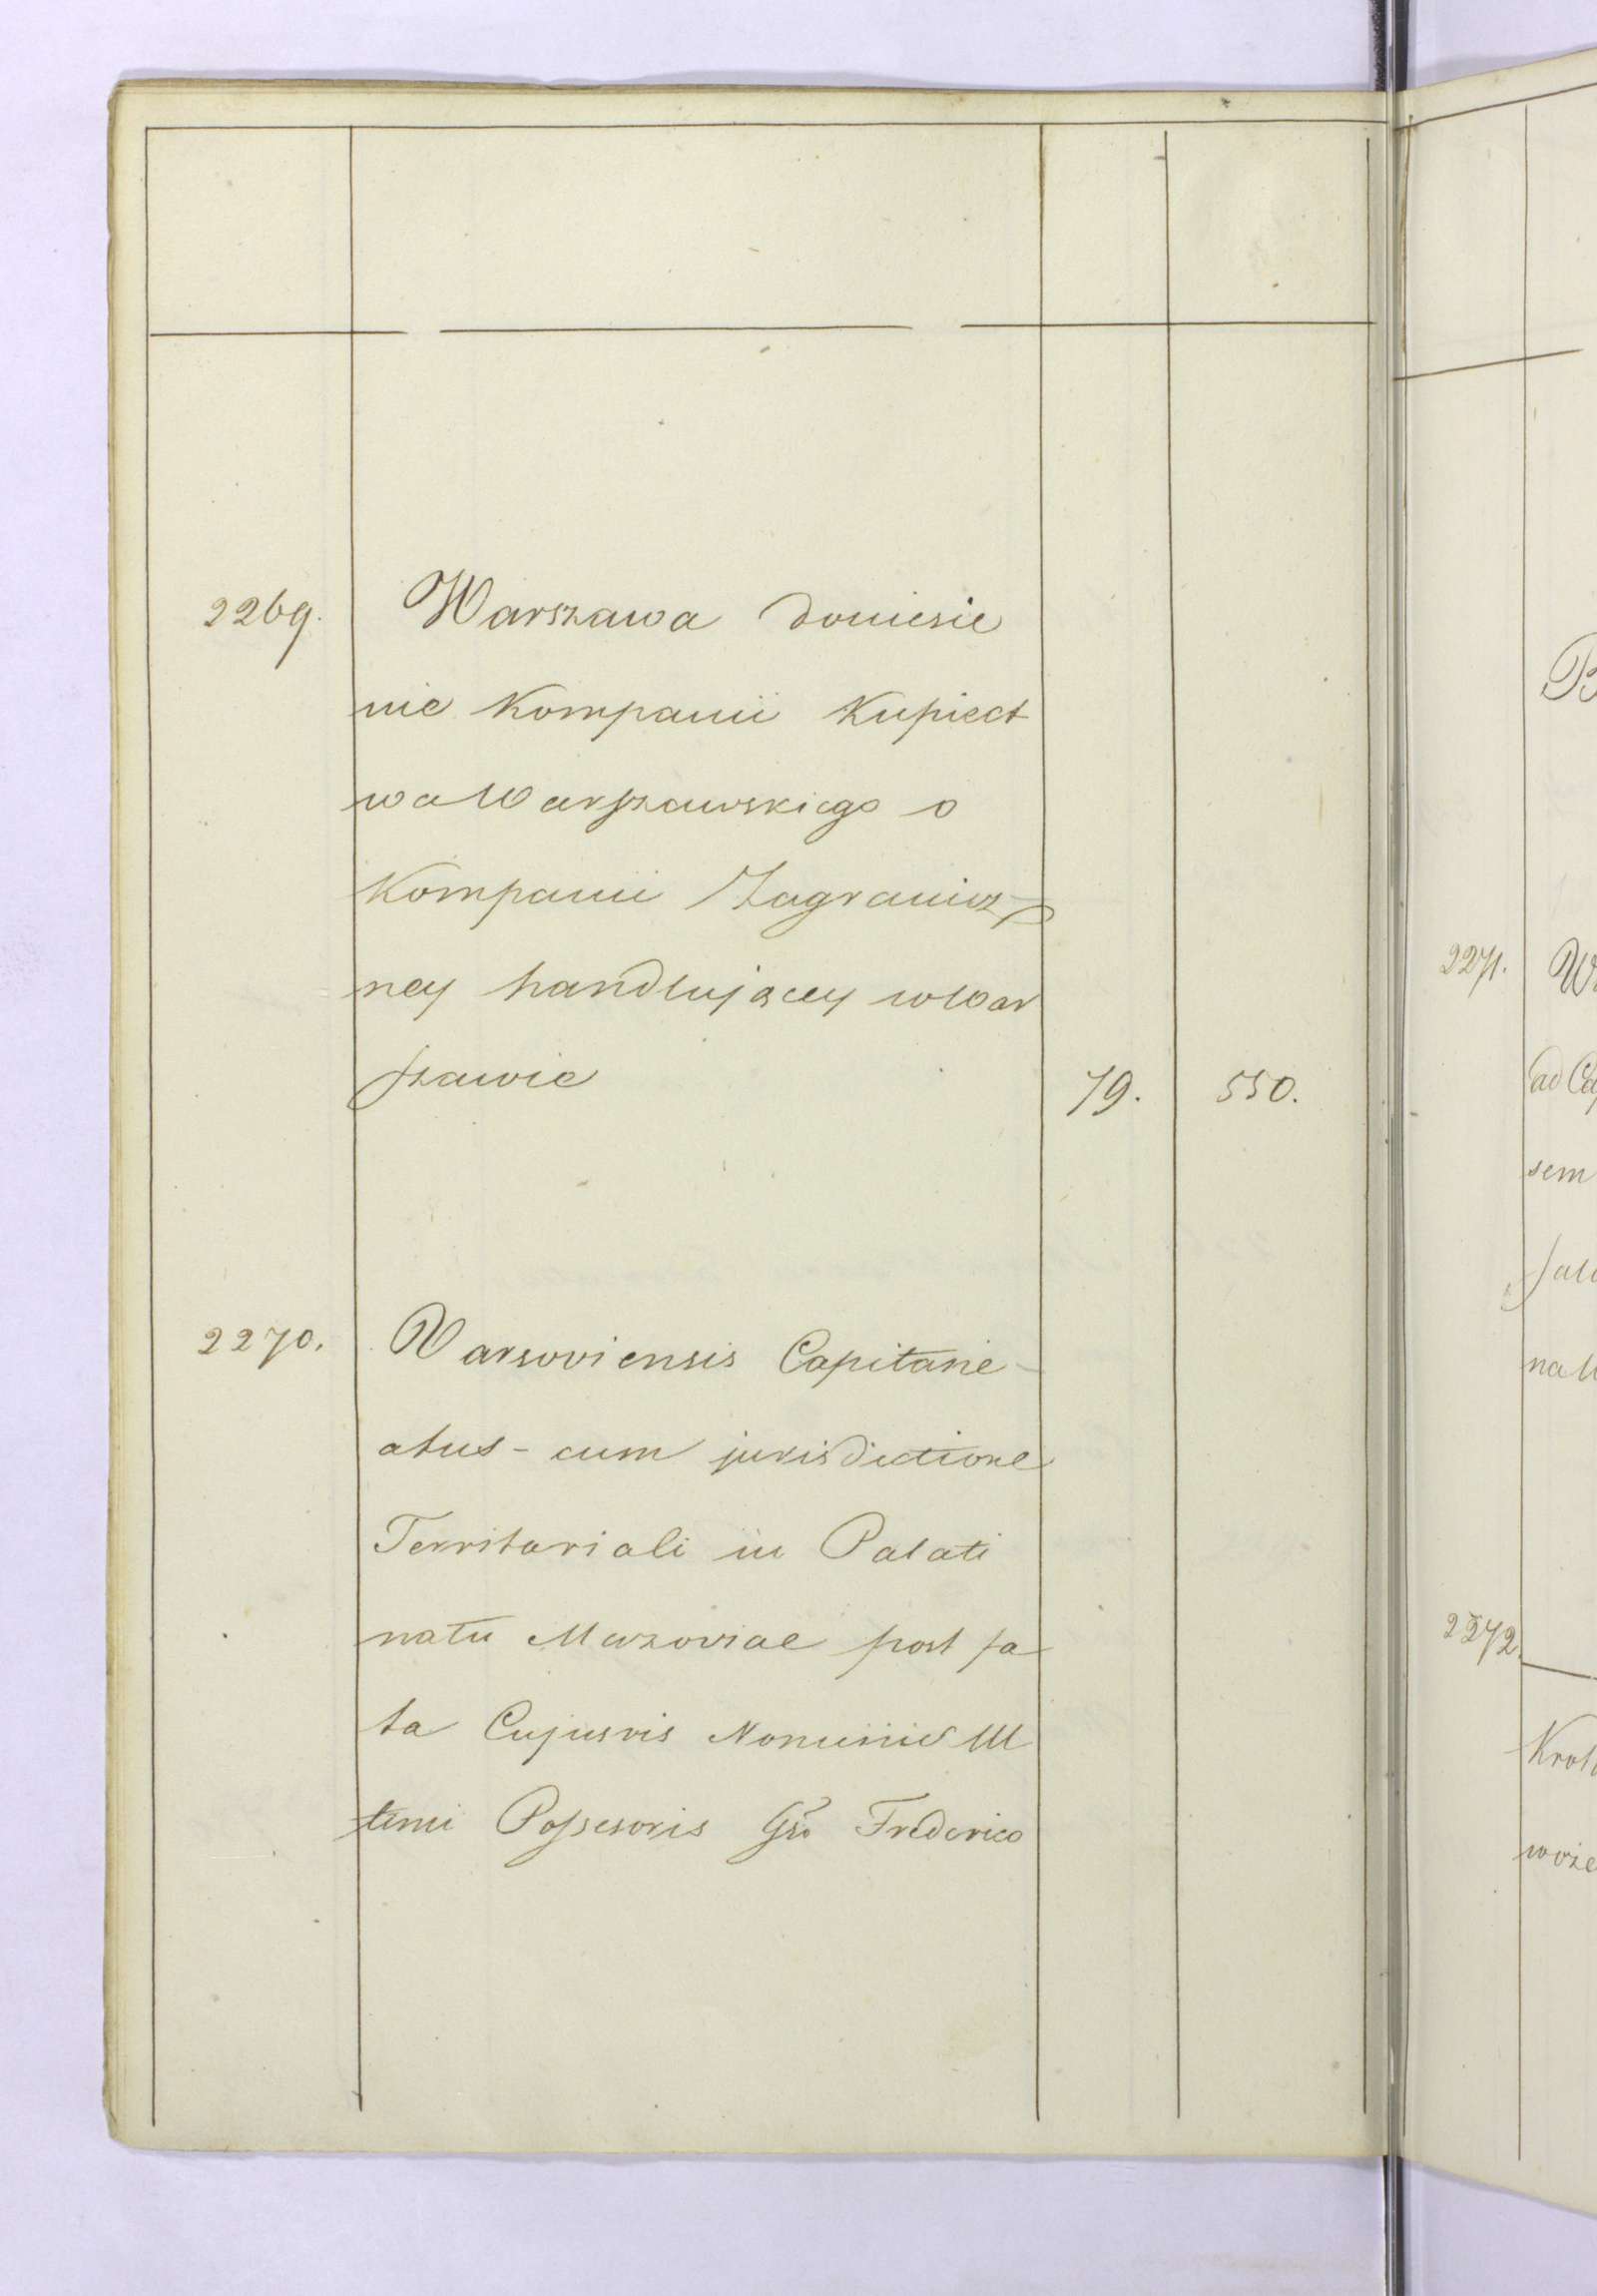 2269. Warszawa doniesie
nie Kompanii Kupiect
wa Warszawskiego o
Kompanii Zagranicz-
ney handlującey w War
szawie 79. 550.
2270. Varsoviensis Capitane-
atus - cum jurisdictione
Territoriali in Palati
natu Mazoviae post fa
ta Cujusvis Nominis Ul
timi Possesoris Gso Frederico
B
2271. W
ad Cap
sem
na
2272.
Krol